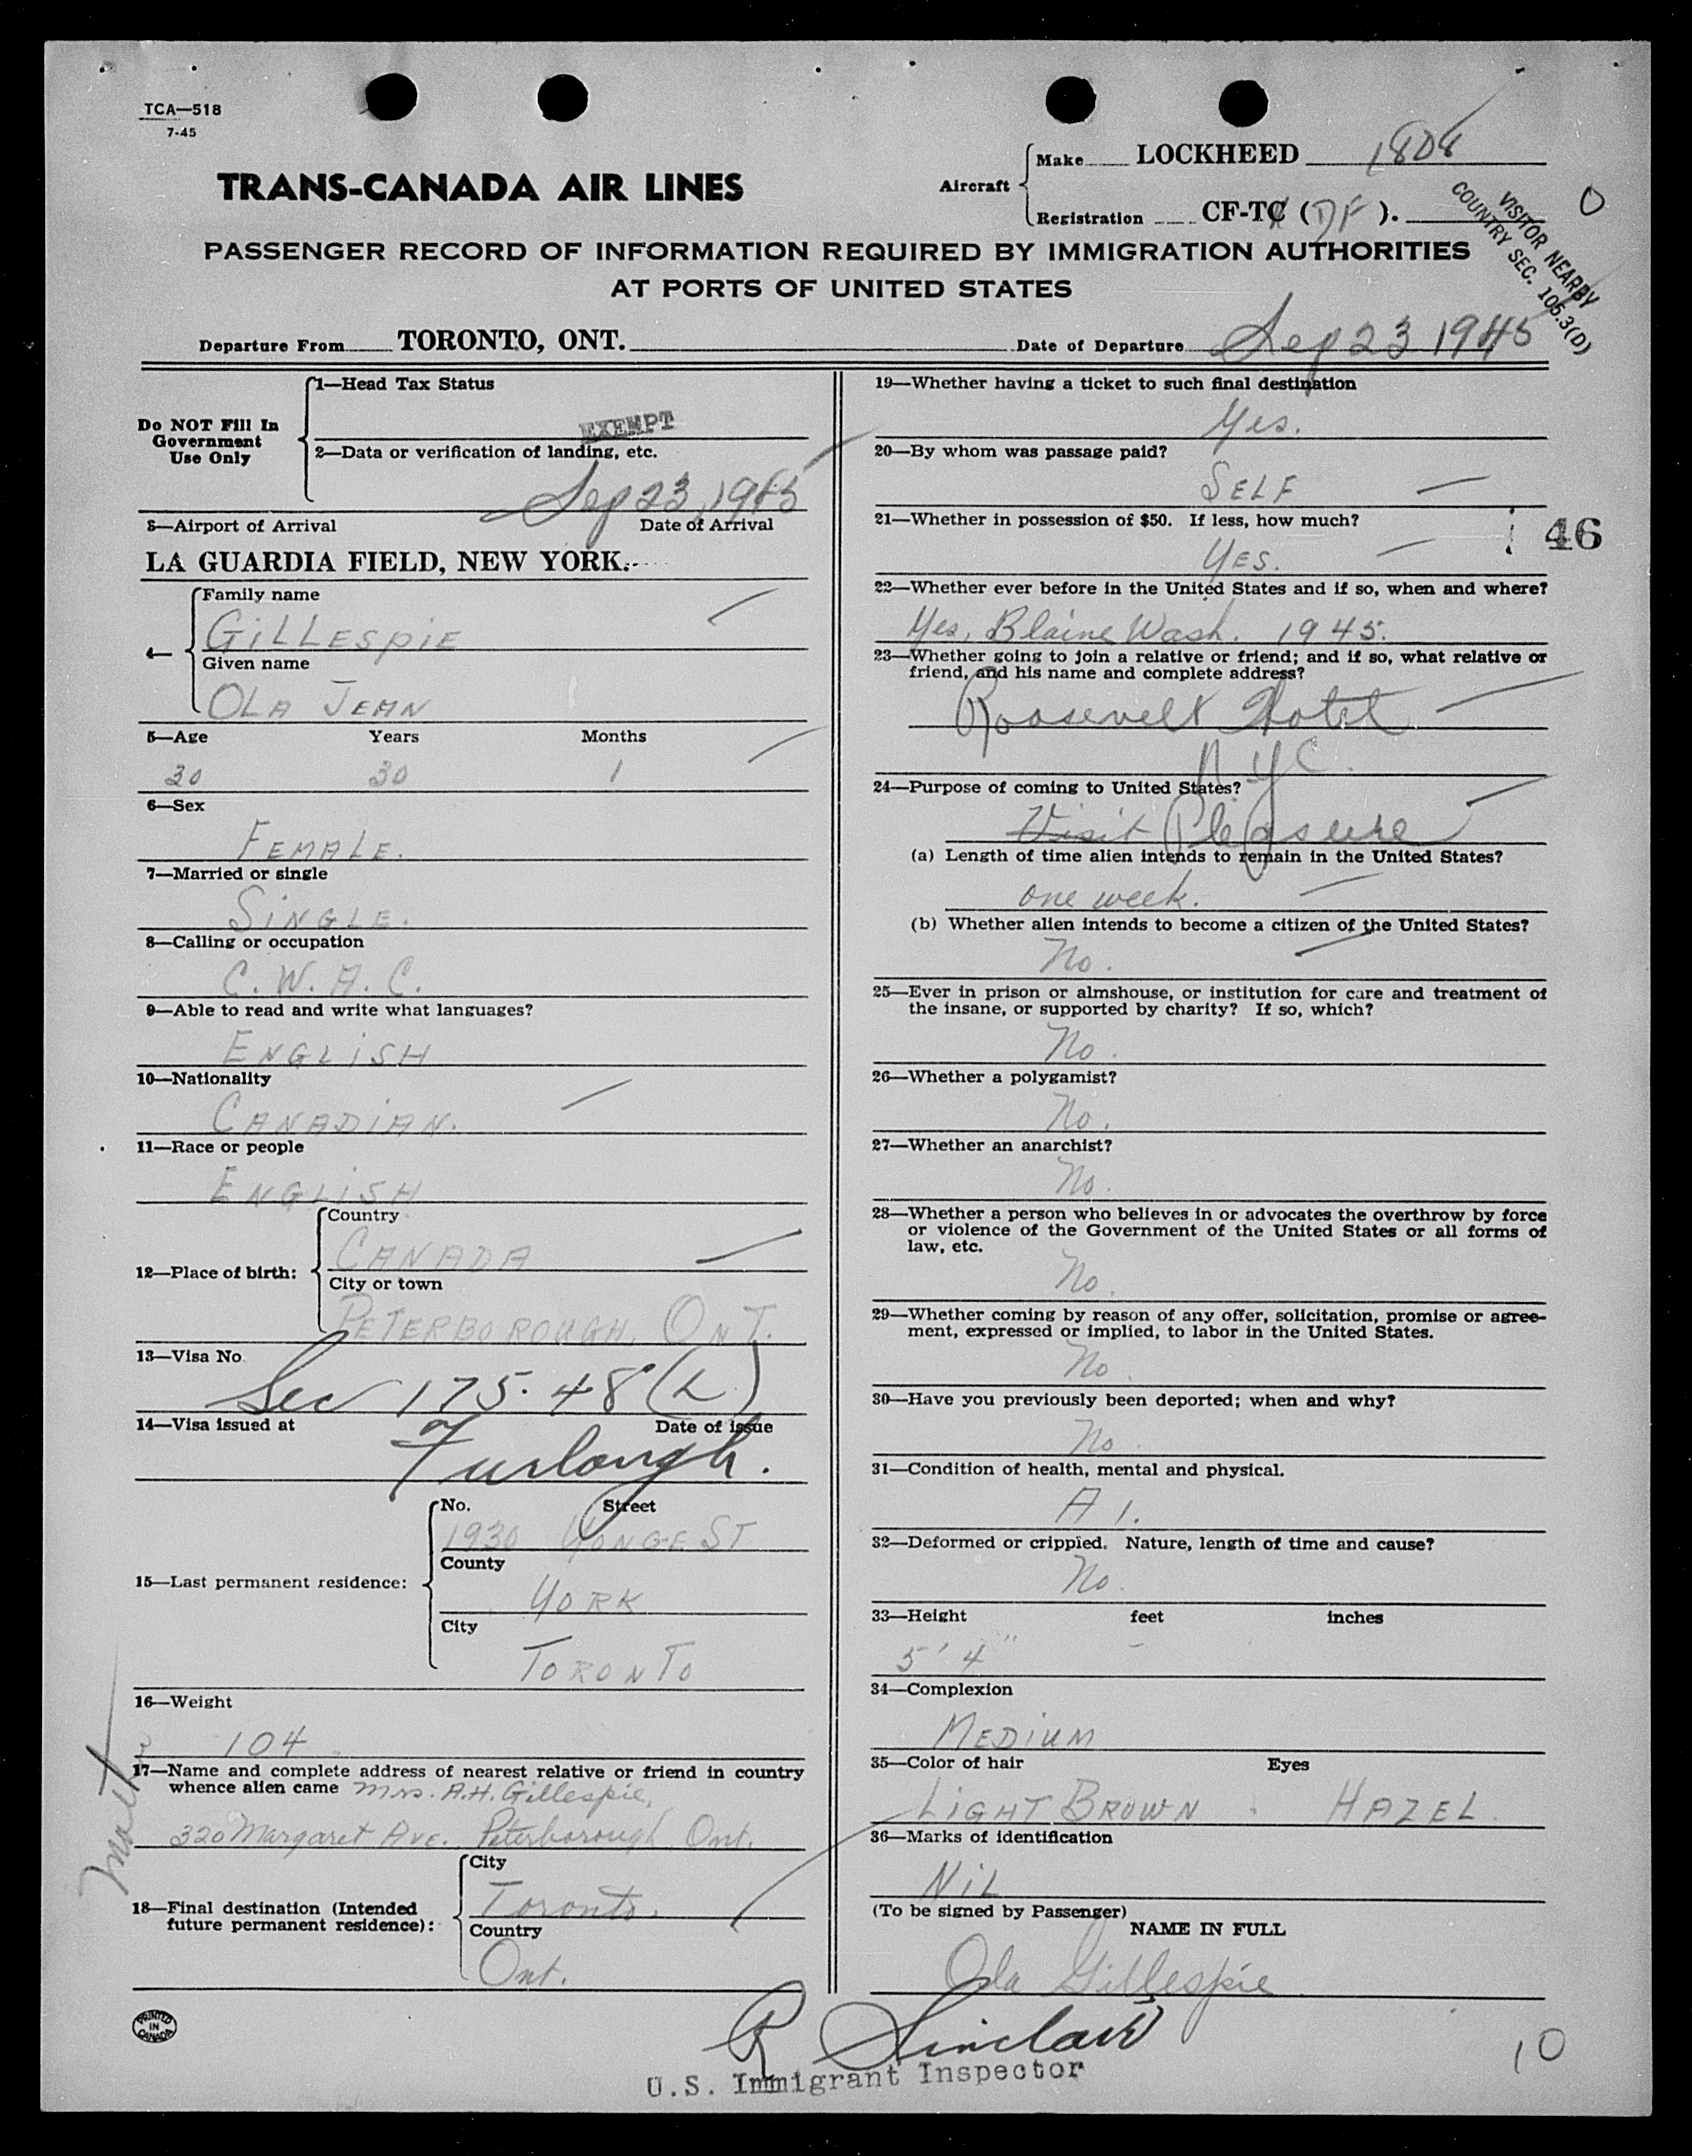 TCA—518
7-45
TRANS-CANADA AIR LINES
Aircraft
Make LOCKHEED 1808
Registration CF-TC (DF).
VISITOR NEARBY
COUNTRY SEC. 105.3(D)
O
PASSENGER RECORD OF INFORMATION REQUIRED BY IMMIGRATION AUTHORITIES
AT PORTS OF UNITED STATES
Departure From TORONTO, ONT. Date of Departure Sep 23 1945
Do NOT Fill In
Government
Use Only
1—Head Tax Status
EXEMPT
2—Data or verification of landing, etc.
Sep 23, 1945
3—Airport of Arrival Date of Arrival
LA GUARDIA FIELD, NEW YORK.
4—
Family name
GILLESPIE
Given name
OLA JEAN
5—Age Years Months
30 30 1
6—Sex
FEMALE.
7—Married or single
SINGLE.
8—Calling or occupation
C. W. A. C.
9—Able to read and write what languages?
ENGLISH
10—Nationality
CANADIAN.
11—Race or people
ENGLISH
12—Place of birth:
Country
CANADA
City or town
PETERBOROUGH, ONT.
13—Visa No.
Sec 175.48 (L)
14—Visa issued at Date of issue
Furlough.
15—Last permanent residence:
No. Street
1930 YONGE ST
County
YORK
City
TORONTO
16—Weight
104
Mother
17—Name and complete address of nearest relative or friend in country
whence alien came Mrs. A.H. Gillespie,
320 Margaret Ave. Peterborough Ont.
18—Final destination (Intended
future permanent residence):
City
Toronto.
Country
Ont.
19—Whether having a ticket to such final destination
Yes.
20—By whom was passage paid?
SELF
21—Whether in possession of $50. If less, how much?
YES.
46
22—Whether ever before in the United States and if so, when and where?
Yes, Blaine Wash. 1945.
23—Whether going to join a relative or friend; and if so, what relative or
friend, and his name and complete address?
Roosevelt Hotel
NYC.
24—Purpose of coming to United States?
Visit Pleasure
(a) Length of time alien intends to remain in the United States?
one week.
(b) Whether alien intends to become a citizen of the United States?
No.
25—Ever in prison or almshouse, or institution for care and treatment of
the insane, or supported by charity? If so, which?
No.
26—Whether a polygamist?
No.
27—Whether an anarchist?
No.
28—Whether a person who believes in or advocates the overthrow by force
or violence of the Government of the United States or all forms of
law, etc.
No.
29—Whether coming by reason of any offer, solicitation, promise or agree-
ment, expressed or implied, to labor in the United States.
No
30—Have you previously been deported; when and why?
No.
31—Condition of health, mental and physical.
A 1.
32—Deformed or crippled. Nature, length of time and cause?
No.
33—Height feet inches
5' 4"
34—Complexion
MEDIUM
35—Color of hair Eyes
LIGHT BROWN HAZEL
36—Marks of identification
NIL
(To be signed by Passenger)
NAME IN FULL
Ola Gillespie
R Sinclair
U.S. Immigrant Inspector
PRINTED
IN
CANADA
10